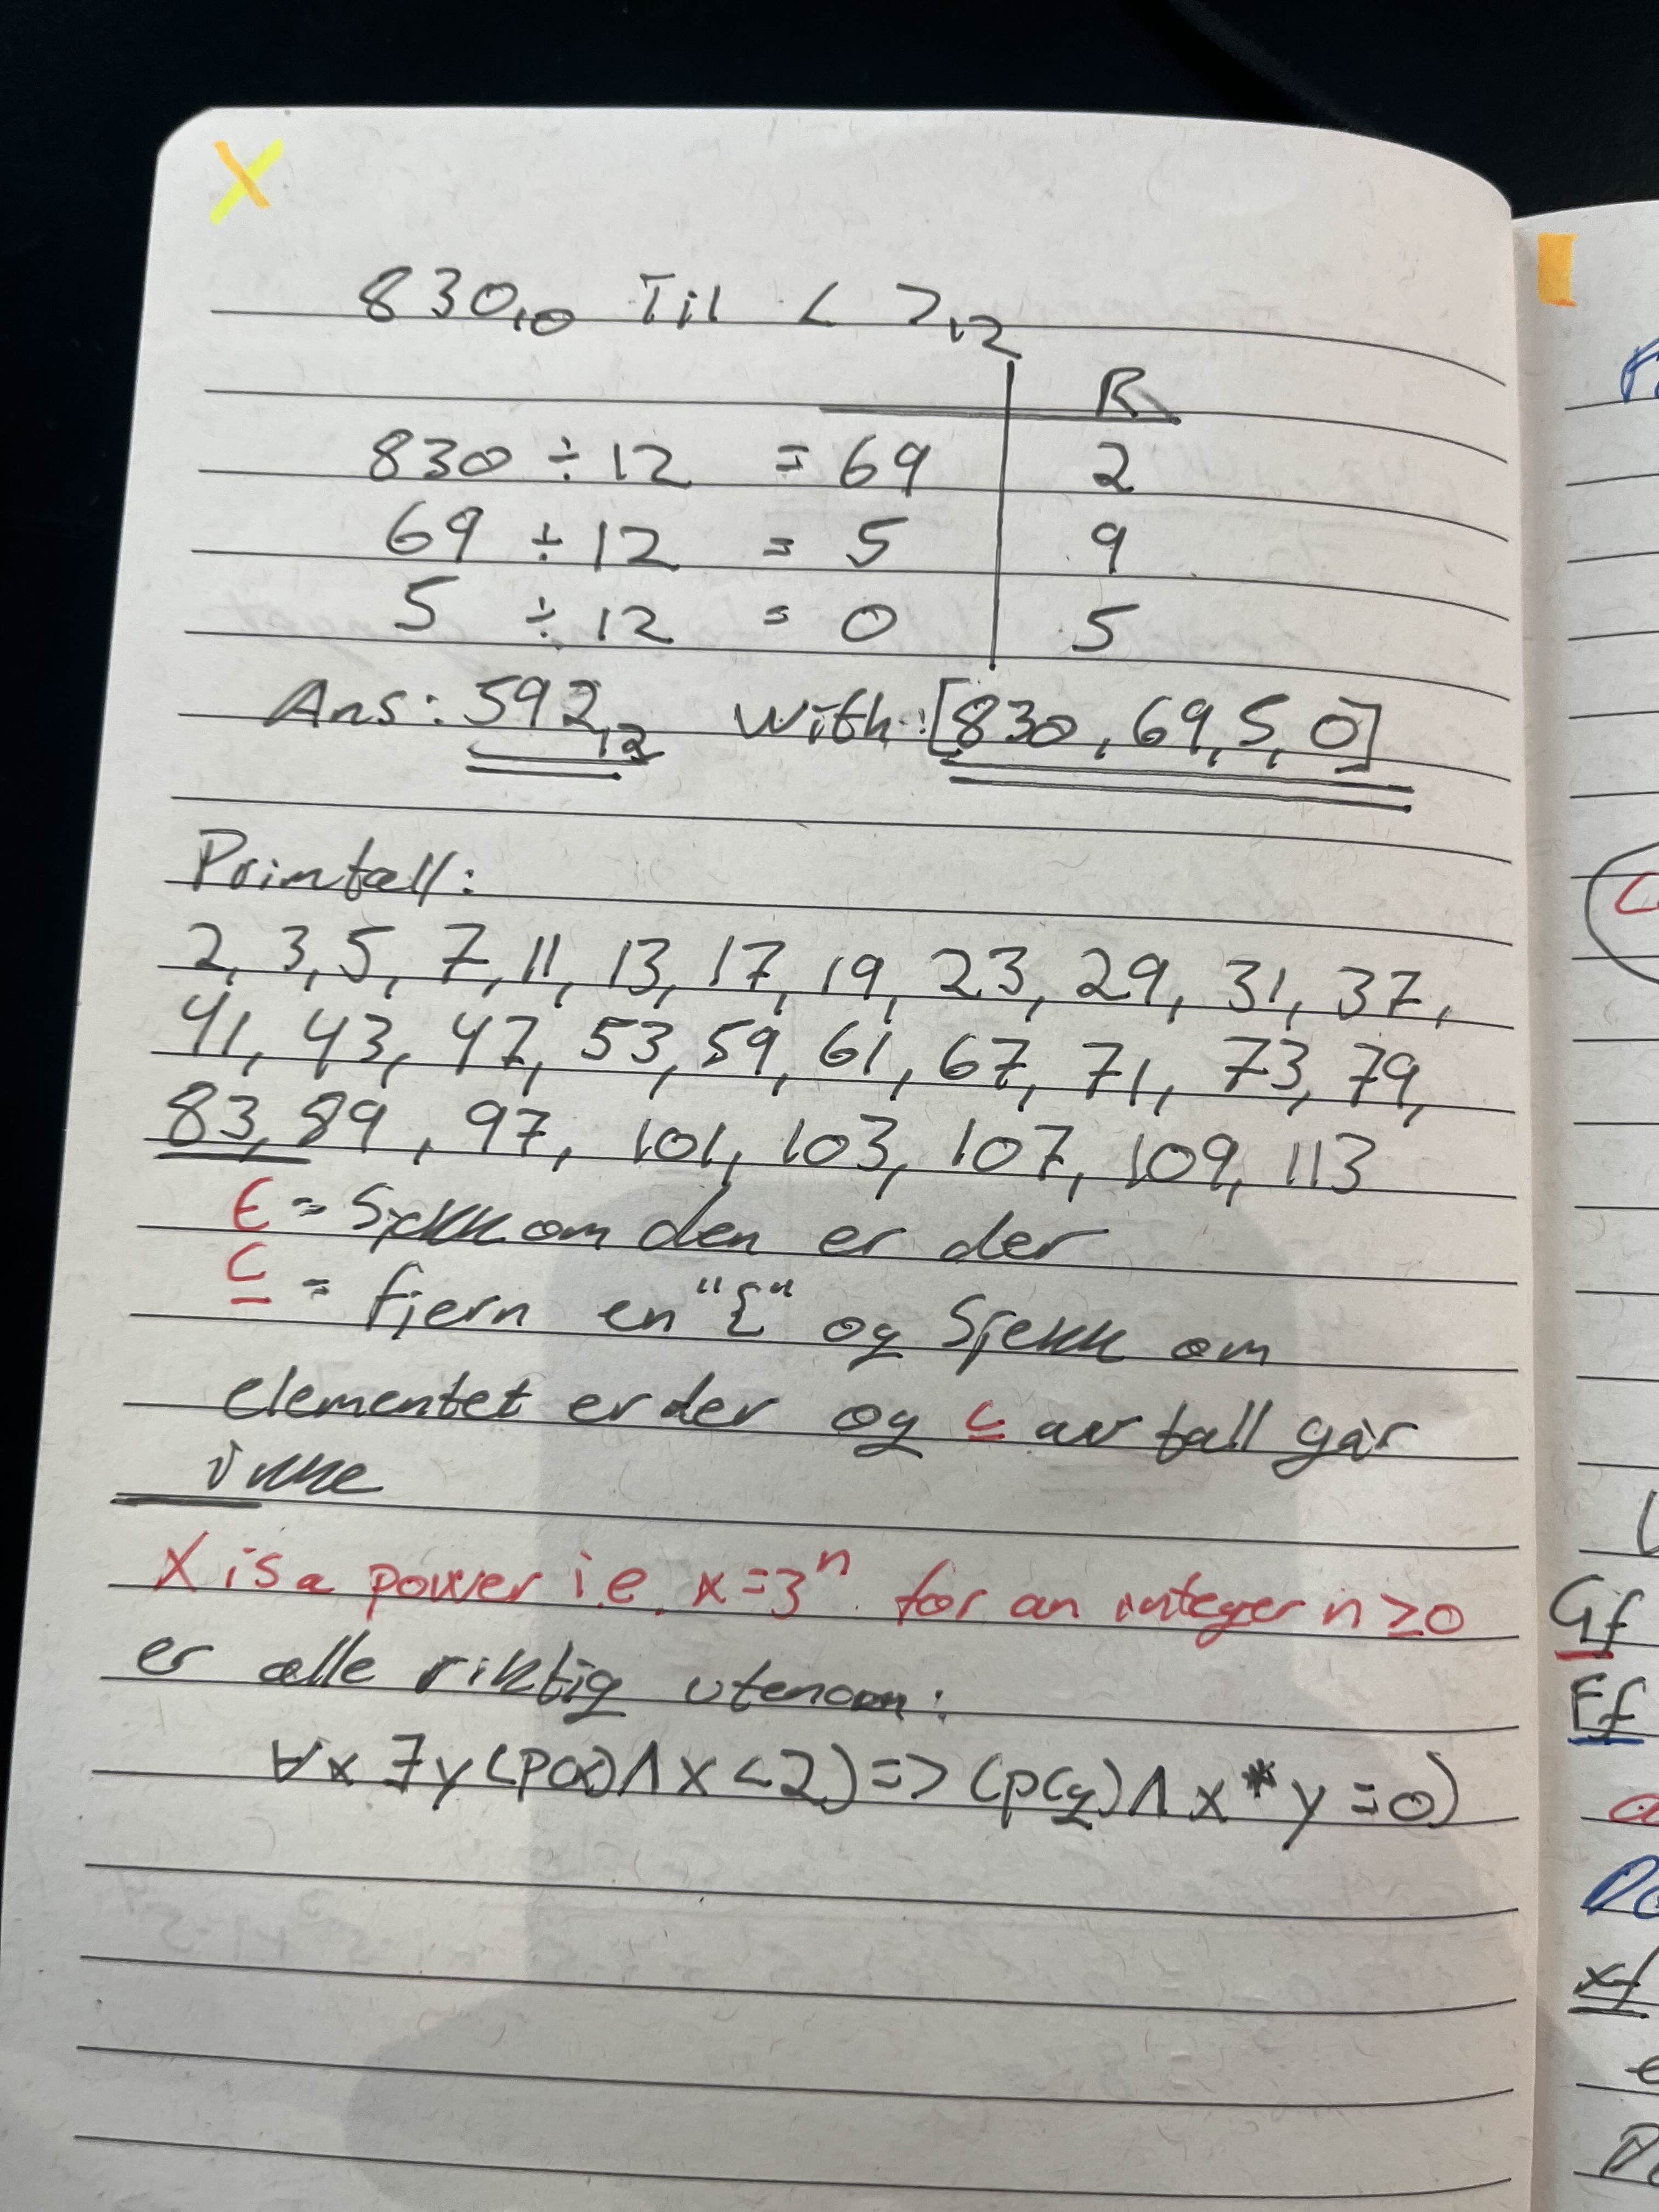 830₁₀ Til < >₁₂
R
830 ÷ 12 = 69 2
69 ÷ 12 = 5 9
5 ÷ 12 = 0 5
Ans: 592₁₂ With: [830, 69, 5, 0]
Primtall:
2, 3, 5, 7, 11, 13, 17, 19, 23, 29, 31, 37,
41, 43, 47, 53, 59, 61, 67, 71, 73, 79,
83, 89, 97, 101, 103, 107, 109, 113
∈ = Sjekk om den er der
⊆ = fjern en "{" og Sjekk om
elementet er der og ⊆ av tall går
ikke
X is a power i.e. x=3ⁿ for an integer n≥0
er alle riktig utenom:
∀x ∃y (p(x) ∧ x < 2) => (p(y) ∧ x * y = 0)
Gf
Ef